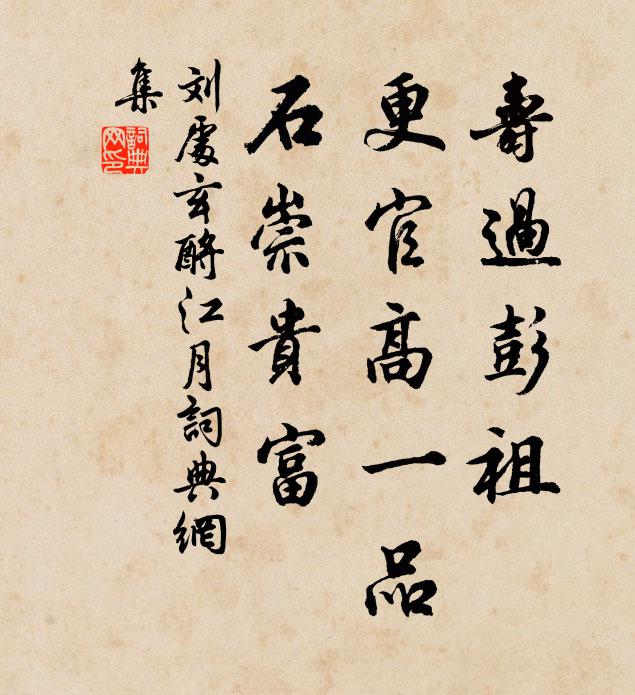 壽過彭祖
更官高一品
石崇貴富
刘處玄酹江月詞典網
集
詞典
网印